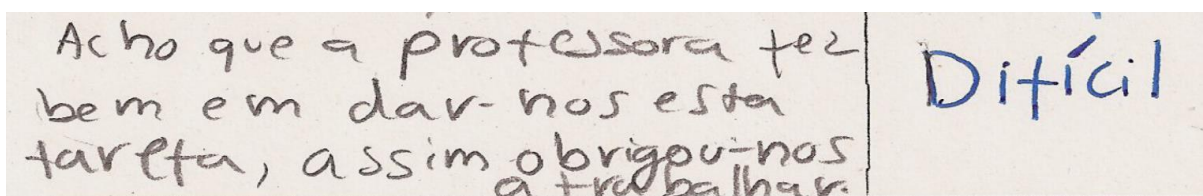 Acho que a professora fez
bem em dar-nos esta
tarefa, assim obrigou-nos
a trabalhar.
Difícil